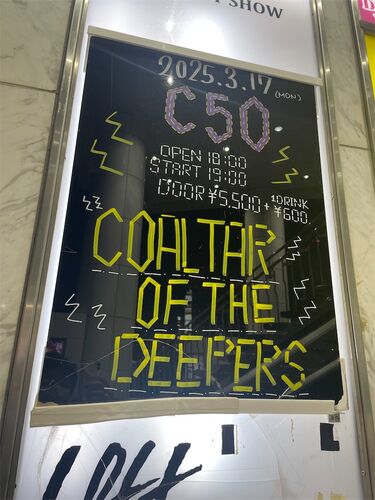 SHOW
2025.3.17 (MON)
C50
OPEN 18:00
START 19:00
DOOR ¥5,500 + 1DRINK ¥600.
COALTAR
OF THE
DEEPERS